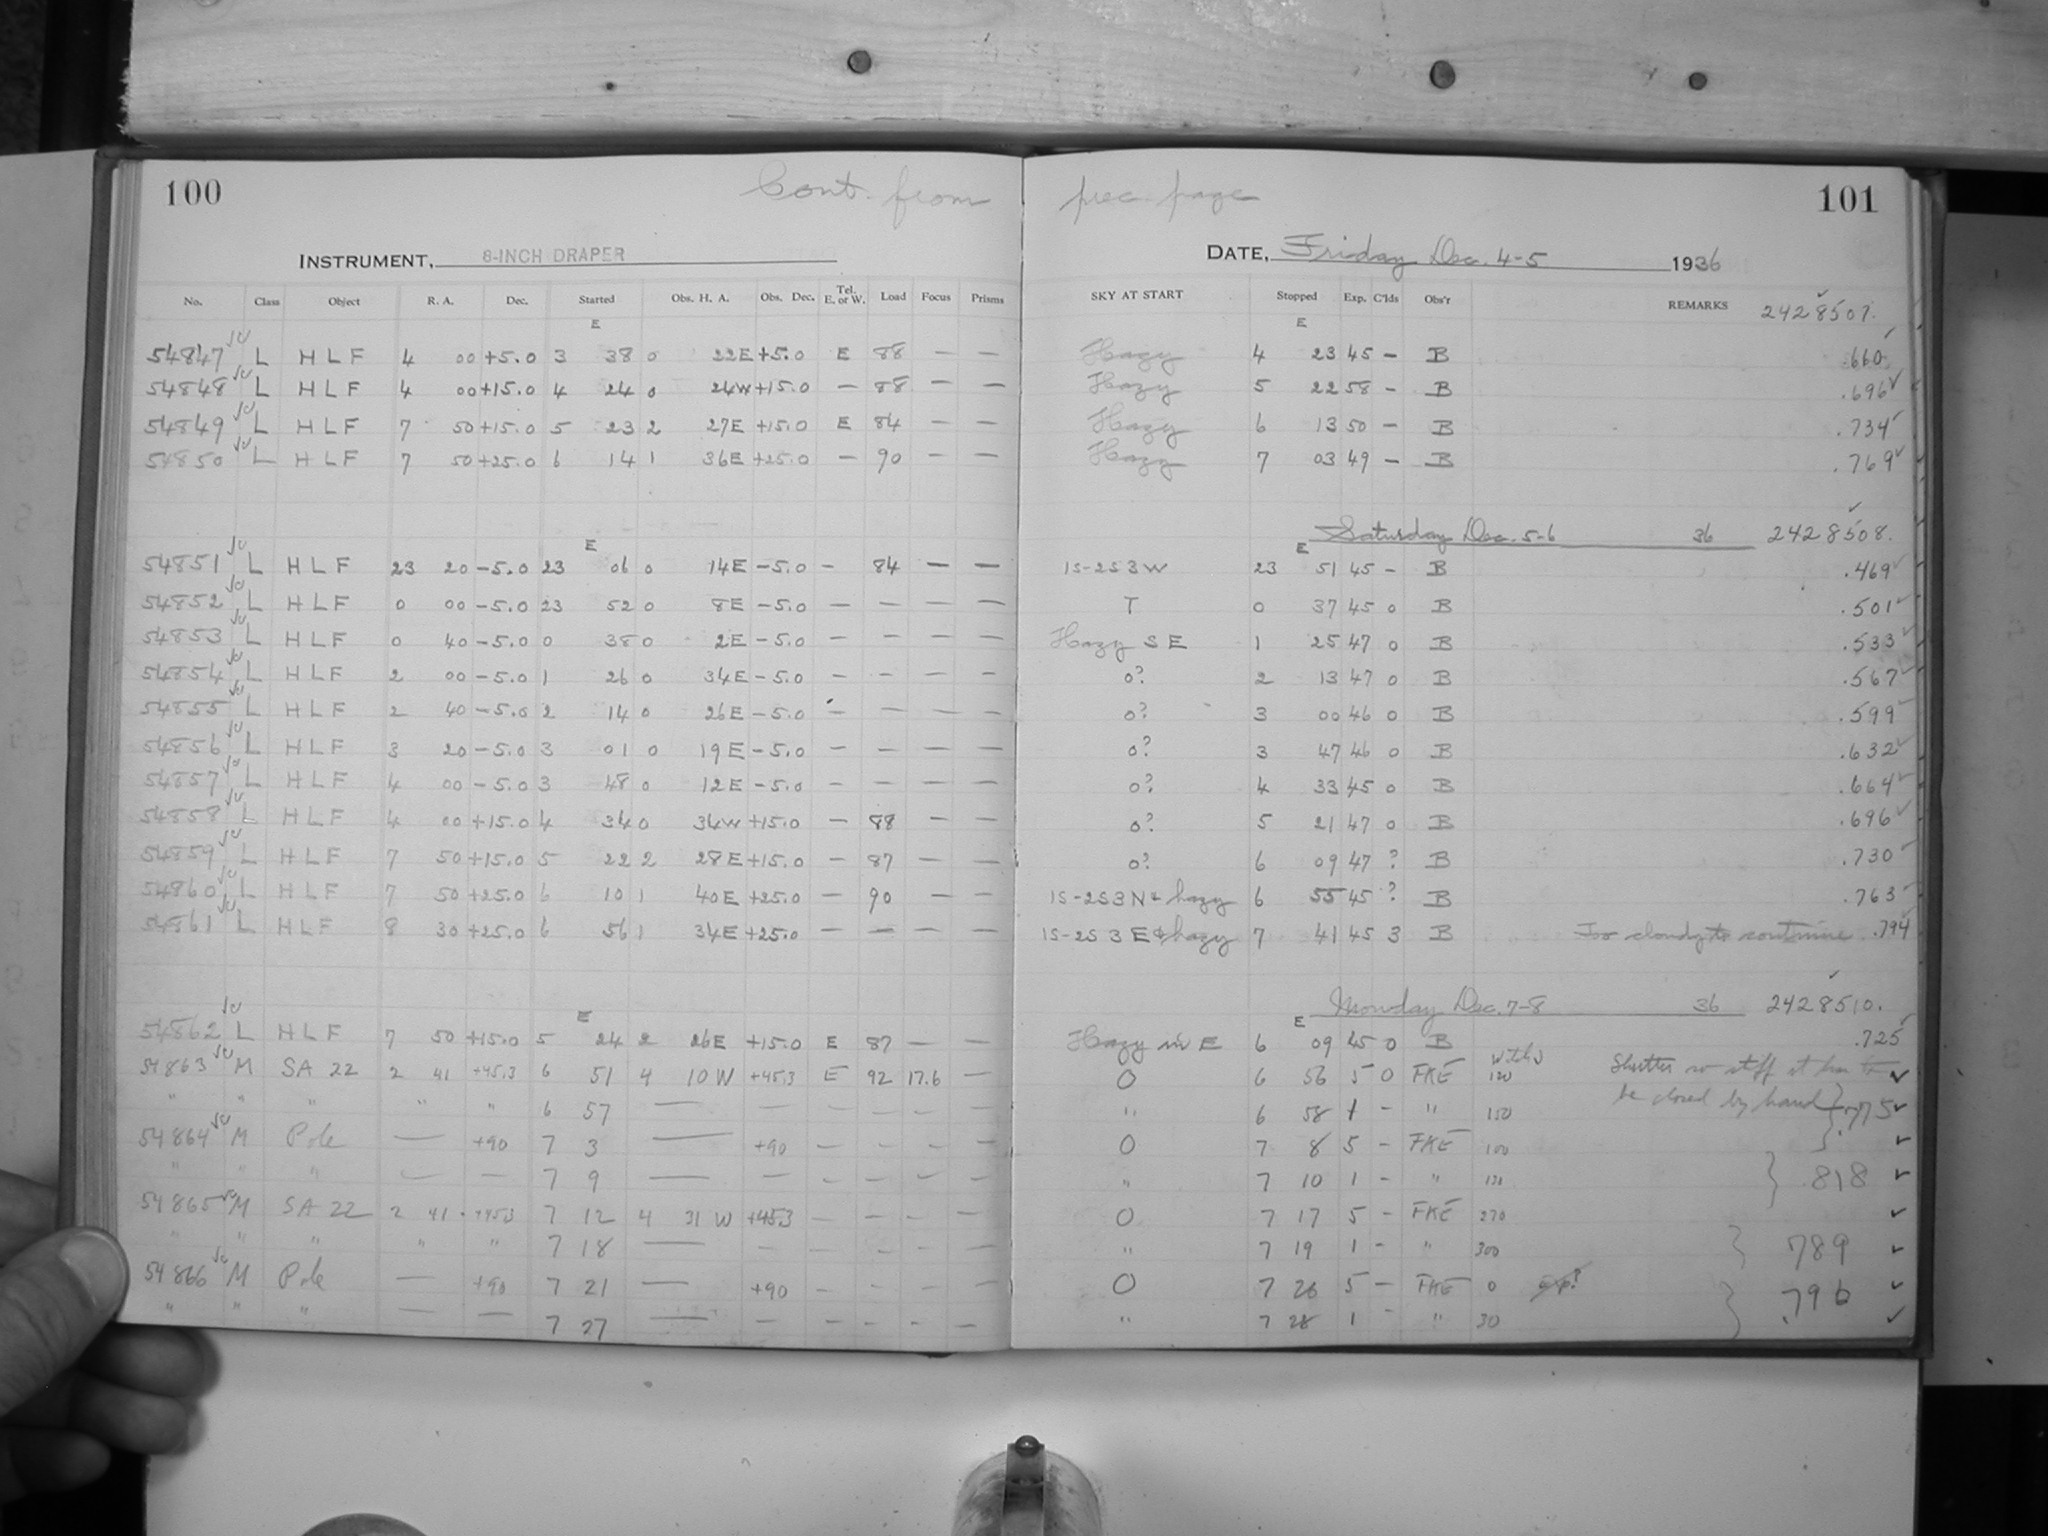 100 Cont. from prec. page 101
INSTRUMENT, 8-INCH DRAPER DATE, Friday Dec. 4-5 1936
No. Class Object R. A. Dec. Started Obs. H. A. Obs. Dec. Tel. E. or W. Load Focus Prisms SKY AT START Stopped Exp. C'lds Obs'r REMARKS 2428507.
E E
54847 L HLF 4 00 +5.0 3 38 0 22E +5.0 E 88 — — Hazy 4 23 45 – B .660
54848 L HLF 4 00 +15.0 4 24 0 24W +15.0 — 88 — — Hazy 5 22 58 – B .696
54849 L HLF 7 50 +15.0 5 23 2 27E +15.0 E 84 — — Hazy 6 13 50 – B .734
54850 L HLF 7 50 +25.0 6 14 1 36E +25.0 — 90 — — Hazy 7 03 49 – B .769
Saturday Dec. 5-6 36 2428508.
E E
54851 L HLF 23 20 -5.0 23 06 0 14E -5.0 – 84 — — 1S-2S3W 23 51 45 – B .469
54852 L HLF 0 00 -5.0 23 52 0 8E -5.0 — — — — T 0 37 45 0 B .501
54853 L HLF 0 40 -5.0 0 38 0 2E -5.0 — — — — Hazy SE 1 25 47 0 B .533
54854 L HLF 2 00 -5.0 1 26 0 34E -5.0 — — — — 0? 2 13 47 0 B .567
54855 L HLF 2 40 -5.0 2 14 0 26E -5.0 — — — — 0? 3 00 46 0 B .599
54856 L HLF 3 20 -5.0 3 01 0 19E -5.0 — — — — 0? 3 47 46 0 B .632
54857 L HLF 4 00 -5.0 3 48 0 12E -5.0 — — — — 0? 4 33 45 0 B .664
54858 L HLF 4 00 +15.0 4 34 0 34W +15.0 — 88 — — 0? 5 21 47 0 B .696
54859 L HLF 7 50 +15.0 5 22 2 28E +15.0 — 87 — — 0? 6 09 47 ? B .730
54860 L HLF 7 50 +25.0 6 10 1 40E +25.0 — 90 — — 1S-2S3N & hazy 6 55 45 ? B .763
54861 L HLF 8 30 +25.0 6 56 1 34E +25.0 — — — — 1S-2S3E & hazy 7 41 45 3 B Too cloudy to continue .794
Monday Dec. 7-8 36 2428510.
E E
54862 L HLF 7 50 +15.0 5 24 2 26E +15.0 E 87 — — Hazy in E 6 09 45 0 B .725
54863 M SA 22 2 41 +45.3 6 51 4 10W +45.3 E 92 17.6 — 0 6 56 5 0 FKE 120 Shutter so stiff it has to
" " " " " 6 57 — — — — — — " 6 58 1 – " 150 be closed by hand } .775
54864 M Pole — +90 7 3 — +90 — — — — 0 7 8 5 – FKE 100
" " " — — 7 9 — — — — — — " 7 10 1 – " 130 } .818
54865 M SA 22 2 41 +45.3 7 12 4 31W +45.3 — — — — 0 7 17 5 – FKE 270
" " " " " 7 18 — — — — — — " 7 19 1 – " 300 } .789
54866 M Pole — +90 7 21 — +90 — — — — 0 7 26 5 – FKE 0
" " " — — 7 27 — — — — — — " 7 28 1 – " 30 } .796